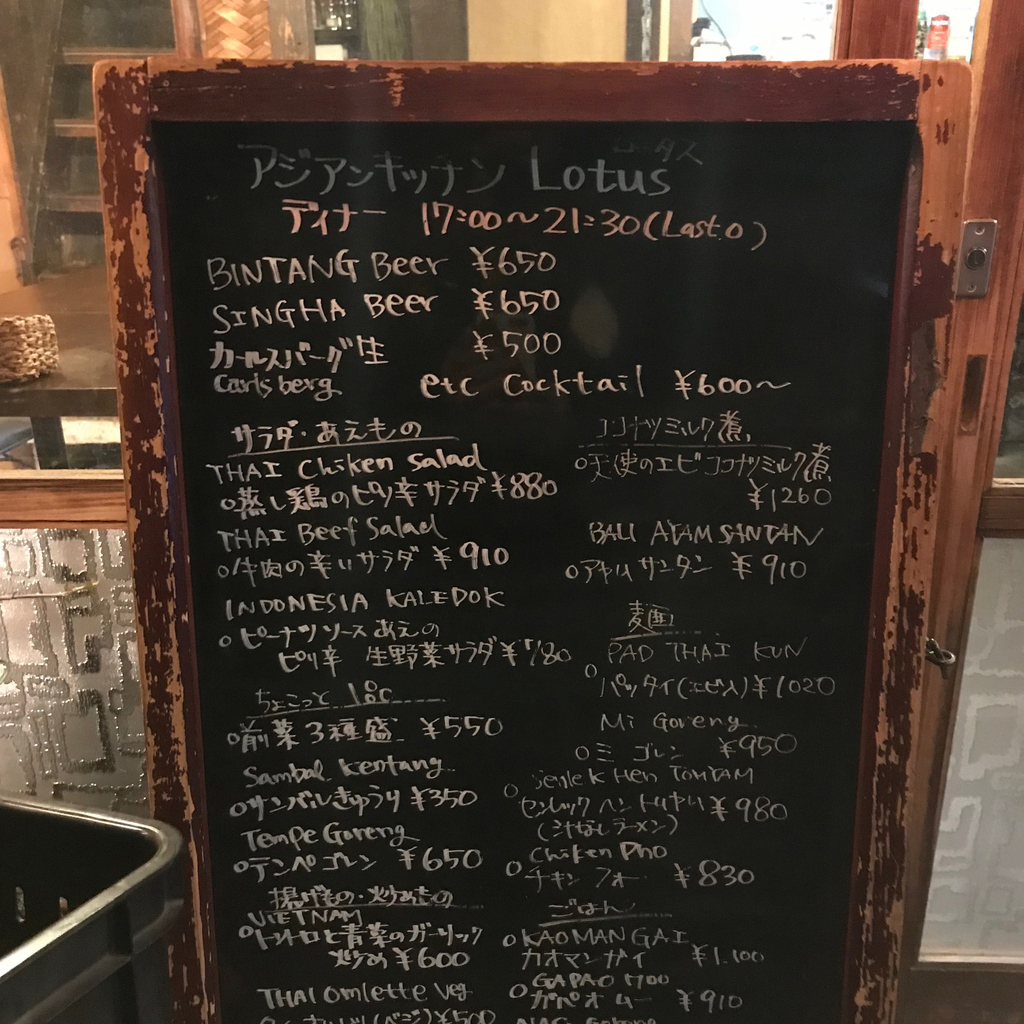 アジアンキッチン Lotus
ータス
ディナー 17:00〜21:30(Last.o)
BINTANG Beer ¥650
SINGHA Beer ¥650
カールスバーグ生 ¥500
Carlsberg etc Cocktail ¥600〜
サラダ・あえもの
THAI Chiken Salad
○蒸し鶏のピリ辛サラダ ¥880
THAI Beef Salad
○牛肉の辛いサラダ ¥910
INDONESIA KALEDOK
○ピーナツソースあえの
ピリ辛 生野菜サラダ ¥780
ちょこっと1品
○前菜3種盛 ¥550
Sambal Kentang
○サンバルきゅうり ¥350
Tempe Goreng
○テンペゴレン ¥650
揚げもの・炒めもの
VIETNAM
○トントロと青菜のガーリック
炒め ¥600
THAI Omlette Veg
(ベジ) ¥500
ココナツミルク煮
○天使のエビココナツミルク煮
¥1260
BALI AYAM SANTAN
○アヤムサンタン ¥910
麺
PAD THAI KUN
○パッタイ(エビ入) ¥1020
Mi Goreng
○ミ ゴレン ¥950
○ Senlek Hen TOMYAM
センレック ヘン トムヤム ¥980
(汁なしラーメン)
Chiken Pho
○チキン フォー ¥830
ごはん
○KAOMAN GAI
カオマンガイ ¥1.100
○GAPAO MOO
ガパオムー ¥910